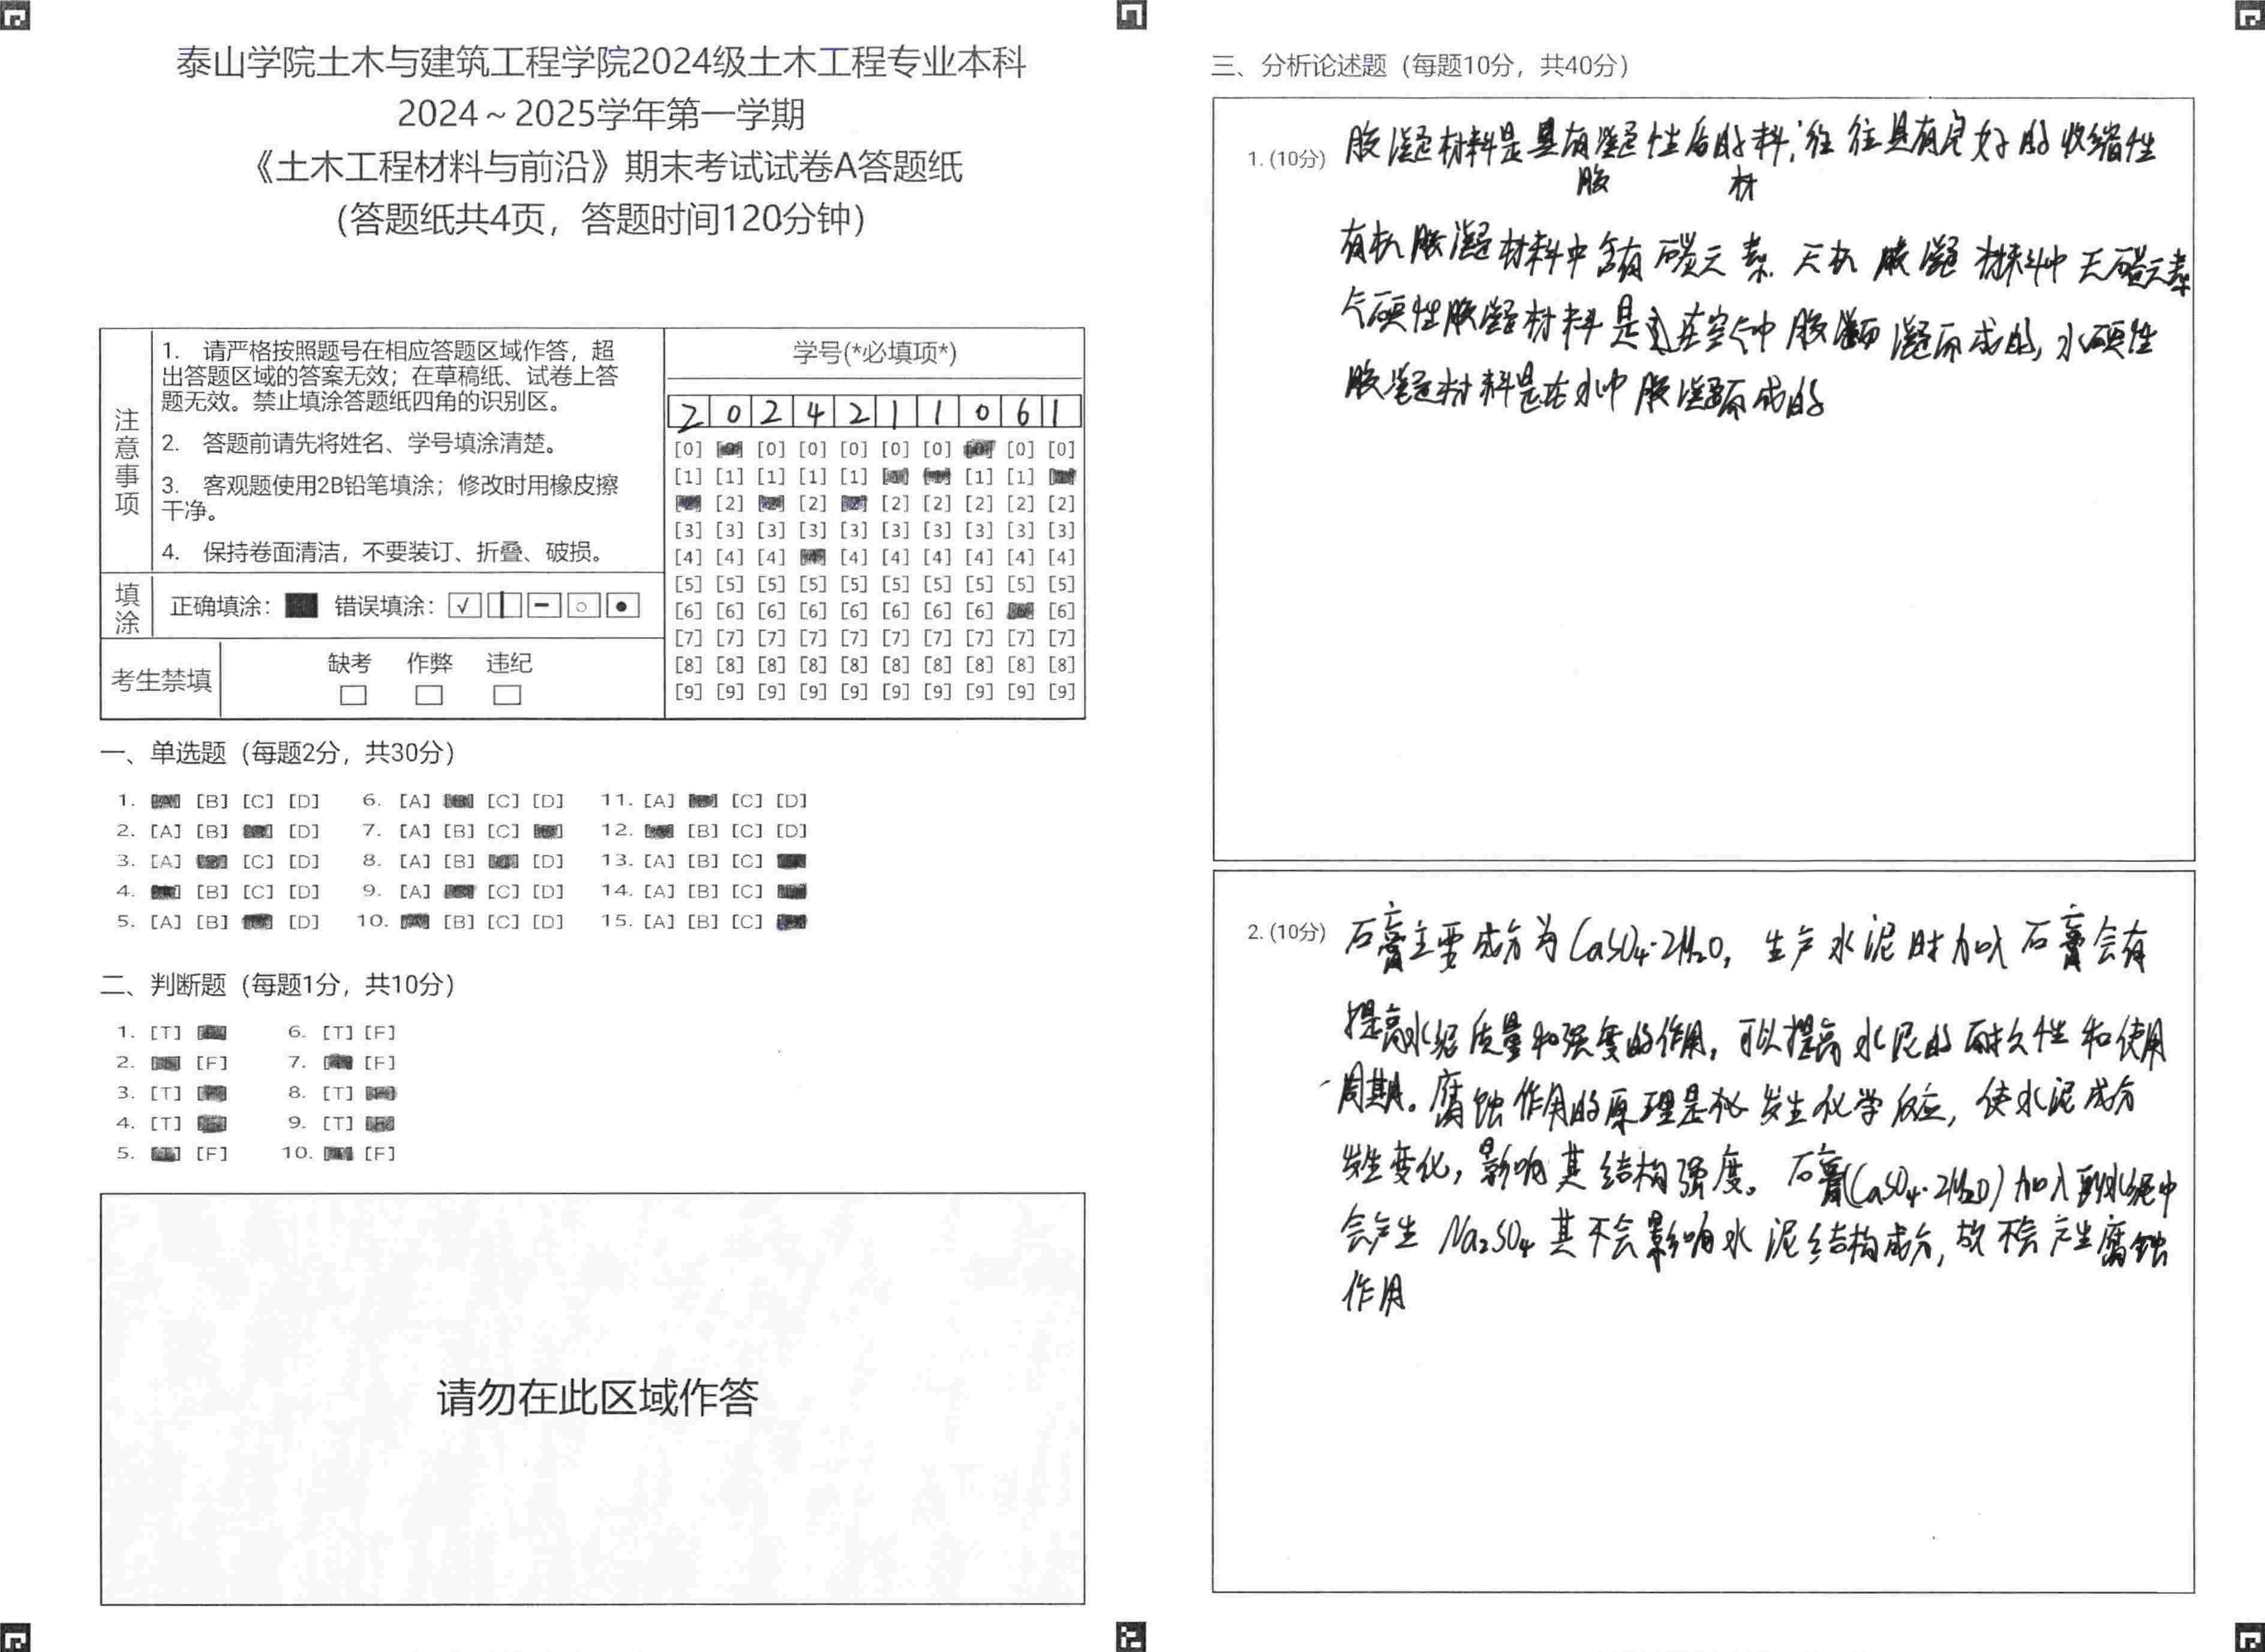 泰山学院土木与建筑工程学院2024级土木工程专业本科
2024～2025学年第一学期
《土木工程材料与前沿》期末考试试卷A答题纸
（答题纸共4页，答题时间120分钟）
注意事项
1. 请严格按照题号在相应答题区域作答，超
出答题区域的答案无效；在草稿纸、试卷上答
题无效。禁止填涂答题纸四角的识别区。
2. 答题前请先将姓名、学号填涂清楚。
3. 客观题使用2B铅笔填涂；修改时用橡皮擦
干净。
4. 保持卷面清洁，不要装订、折叠、破损。
填涂
正确填涂： 错误填涂：
考生禁填
缺考 作弊 违纪
学号(*必填项*)
2 0 2 4 2 1 1 0 6 1
[0] [0] [0] [0] [0] [0] [0] [0] [0]
[1] [1] [1] [1] [1] [1] [1]
[2] [2] [2] [2] [2] [2] [2]
[3] [3] [3] [3] [3] [3] [3] [3] [3] [3]
[4] [4] [4] [4] [4] [4] [4] [4] [4]
[5] [5] [5] [5] [5] [5] [5] [5] [5] [5]
[6] [6] [6] [6] [6] [6] [6] [6] [6]
[7] [7] [7] [7] [7] [7] [7] [7] [7] [7]
[8] [8] [8] [8] [8] [8] [8] [8] [8] [8]
[9] [9] [9] [9] [9] [9] [9] [9] [9] [9]
一、单选题（每题2分，共30分）
1. [B] [C] [D] 6. [A] [C] [D] 11. [A] [C] [D]
2. [A] [B] [D] 7. [A] [B] [C] 12. [B] [C] [D]
3. [A] [C] [D] 8. [A] [B] [D] 13. [A] [B] [C]
4. [B] [C] [D] 9. [A] [C] [D] 14. [A] [B] [C]
5. [A] [B] [D] 10. [B] [C] [D] 15. [A] [B] [C]
二、判断题（每题1分，共10分）
1. [T] 6. [T] [F]
2. [F] 7. [F]
3. [T] 8. [T]
4. [T] 9. [T]
5. [F] 10. [F]
请勿在此区域作答
三、分析论述题（每题10分，共40分）
1. (10分) 胶凝材料是具有凝性后的料；往往具有良好的收缩性
胶 材
有机胶凝材料中含有碳元素，无机胶凝材料中无碳元素
气硬性胶凝材料是在空气中胶凝而成的，水硬性
胶凝材料是在水中胶凝而成的
2. (10分) 石膏主要成分为CaSO₄·2H₂O，生产水泥时加入石膏会有
提高水泥质量和强度的作用，可以提高水泥的耐久性和使用
周期。腐蚀作用的原理是发生化学反应，使水泥成分
发生变化，影响其结构强度。石膏(CaSO₄·2H₂O)加入到水泥中
会产生Na₂SO₄其不会影响水泥结构成分，故不会产生腐蚀
作用